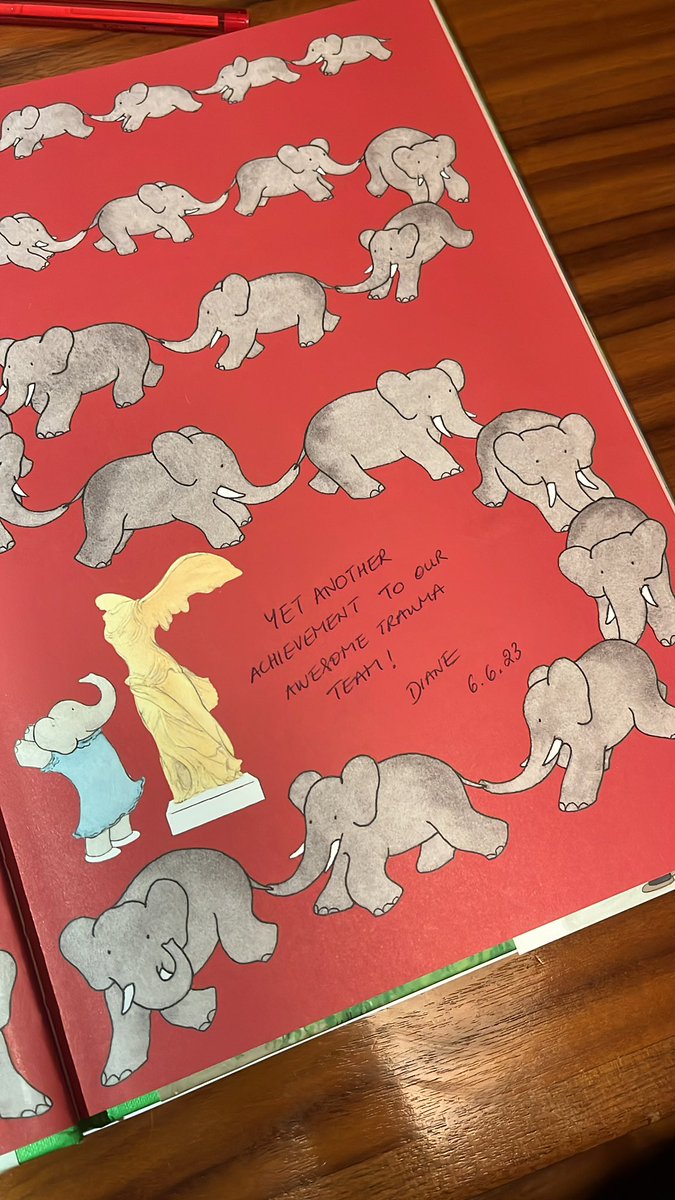 YET ANOTHER
ACHIEVEMENT TO OUR
AWESOME TRAUMA
TEAM!
DIANE 6.6.23